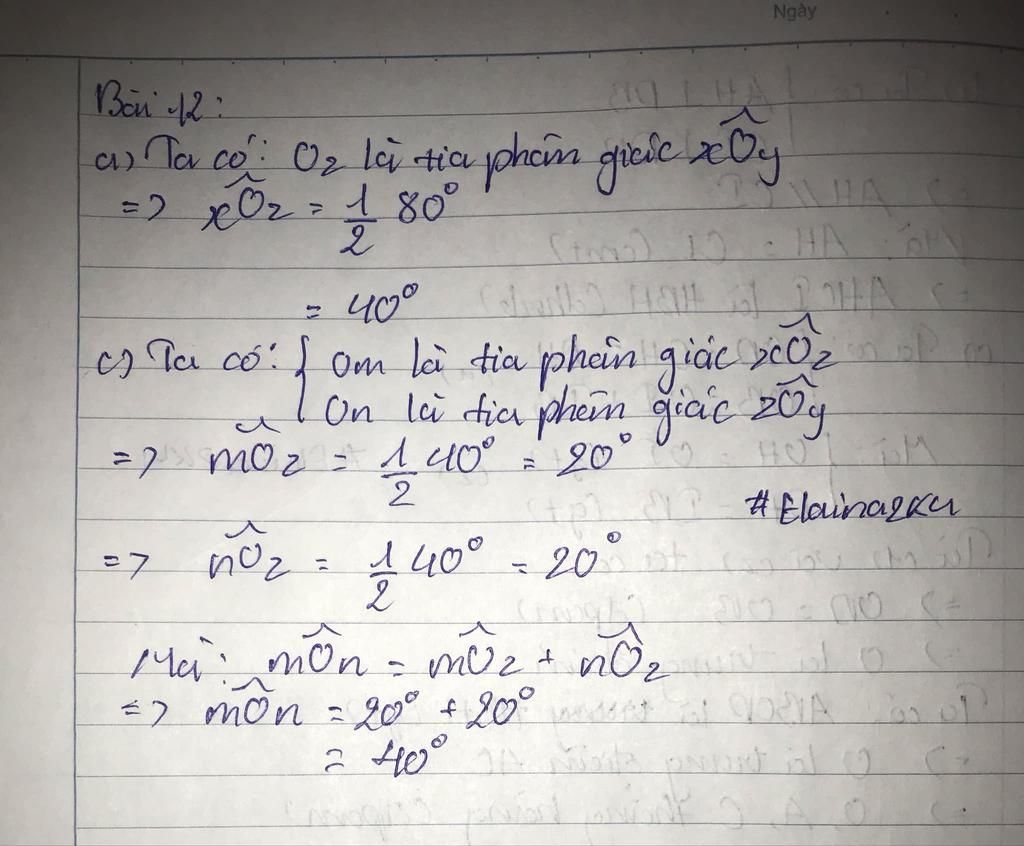 Ngày
Bài 12:
a) Ta có: Oz là tia phân giác xÔy
=> xÔz = 1/2 80°
= 40°
c) Ta có: { Om là tia phân giác xÔz
On là tia phân giác zÔy
=> mÔz = 1/2 40° = 20°
#Elaina2k4
=> nÔz = 1/2 40° = 20°
Mà: mÔn = mÔz + nÔz
=> mÔn = 20° + 20°
= 40°